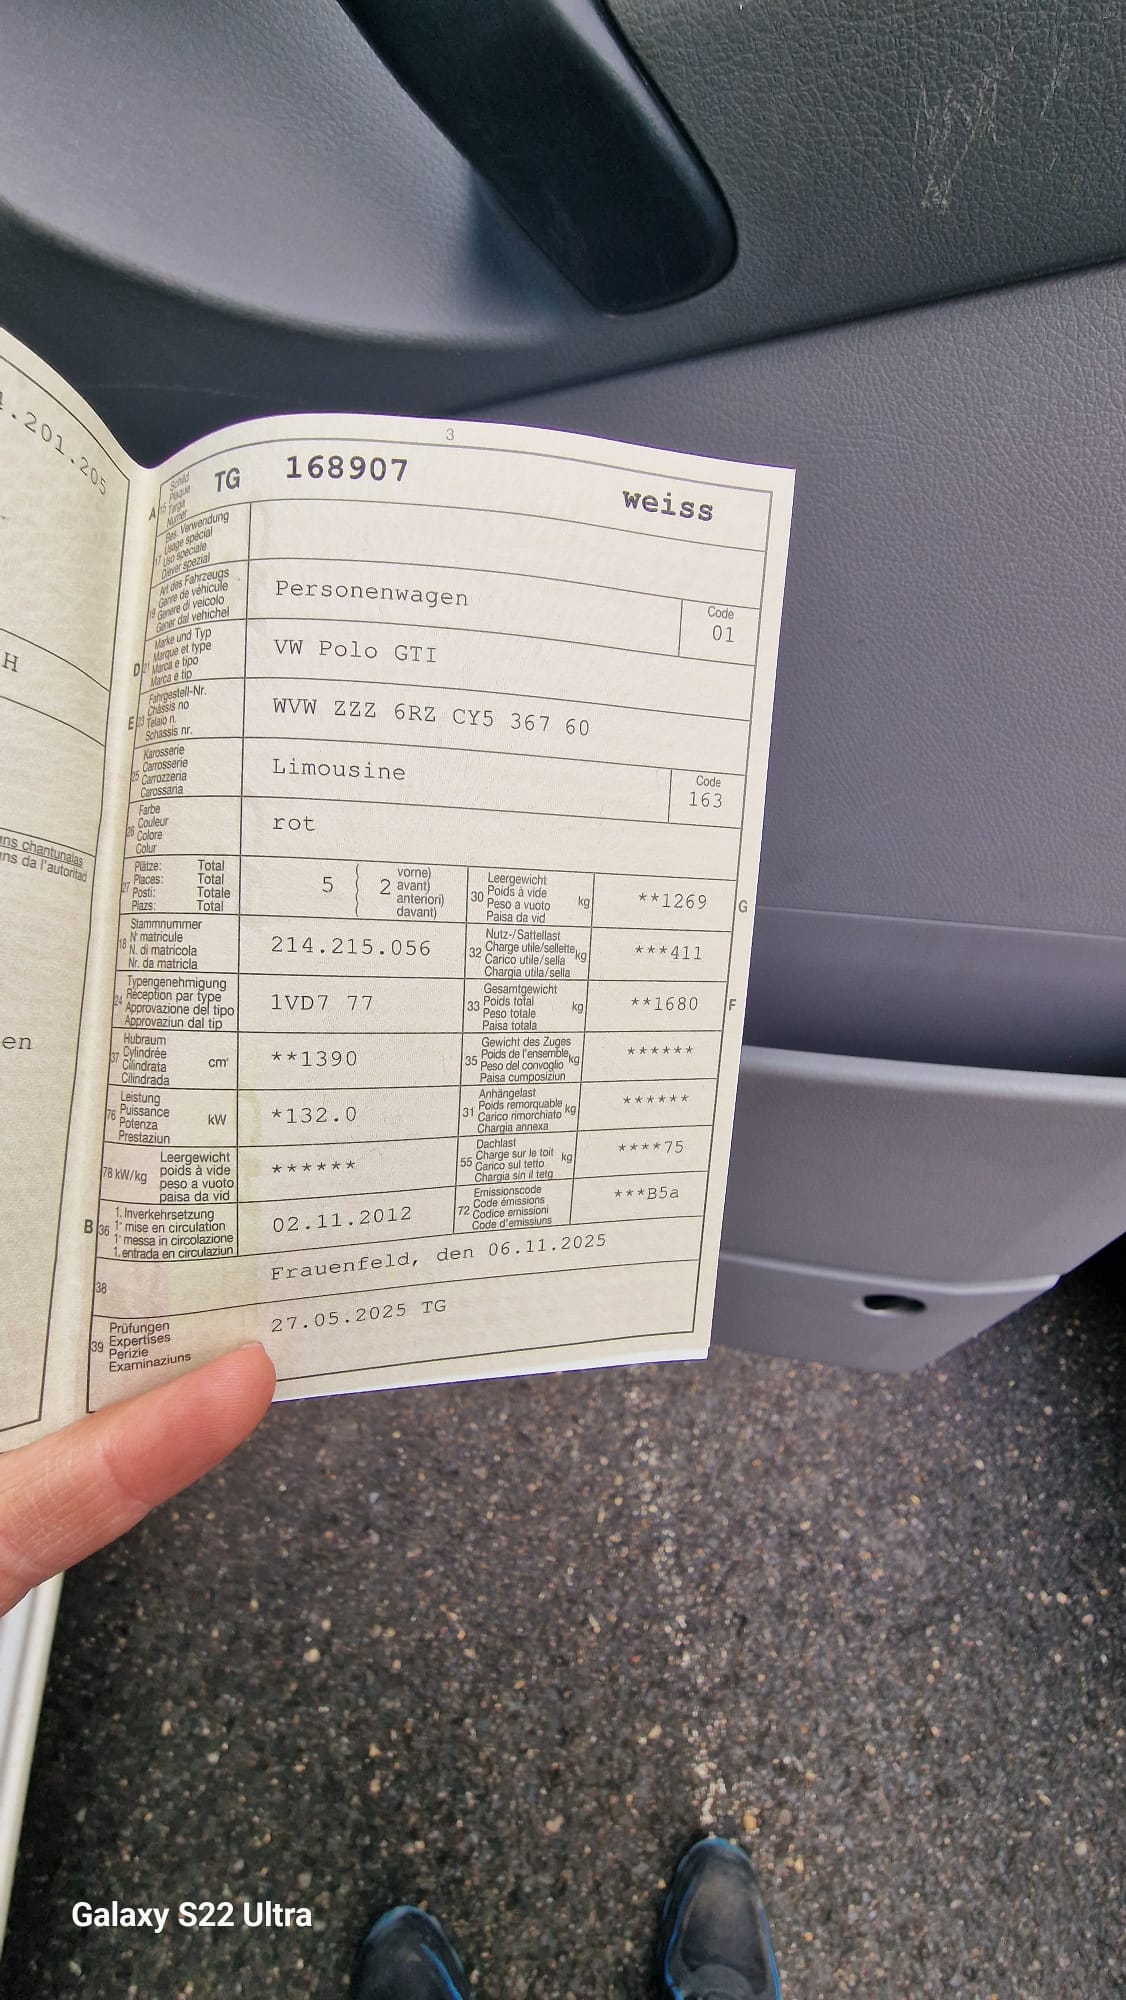 4.201.205
H
ns chantunalas
ns da l'autoritad
en
3
A 15 Schild
Plaque
Targa
Numer
TG 168907 weiss
17 Bes. Verwendung
Usage spécial
Uso speciale
Diever spezial
19 Art des Fahrzeugs
Genre de véhicule
Genere di veicolo
Gener dal vehichel
Personenwagen
Code
01
D 21 Marke und Typ
Marque et type
Marca e tipo
Marca e tip
VW Polo GTI
E 23 Fahrgestell-Nr.
Châssis no
Telaio n.
Schassis nr.
WVW ZZZ 6RZ CY5 367 60
25 Karosserie
Carrosserie
Carrozzeria
Carossaria
Limousine
Code
163
26 Farbe
Couleur
Colore
Colur
rot
27 Plätze: Total
Places: Total
Posti: Totale
Plazs: Total
5 2 vorne)
avant)
anteriori)
davant)
30 Leergewicht
Poids à vide
Peso a vuoto
Paisa da vid
kg **1269 G
18 Stammnummer
N° matricule
N. di matricola
Nr. da matricla
214.215.056
32 Nutz-/Sattellast
Charge utile/sellette
Carico utile/sella
Chargia utila/sella
kg ***411
24 Typengenehmigung
Réception par type
Approvazione del tipo
Approvaziun dal tip
1VD7 77
33 Gesamtgewicht
Poids total
Peso totale
Paisa totala
kg **1680 F
37 Hubraum
Cylindrée
Cilindrata
Cilindrada
cm³ **1390
35 Gewicht des Zuges
Poids de l'ensemble
Peso del convoglio
Paisa cumposiziun
kg ******
76 Leistung
Puissance
Potenza
Prestaziun
kW *132.0
31 Anhängelast
Poids remorquable
Carico rimorchiato
Chargia annexa
kg ******
78 kW/kg Leergewicht
poids à vide
peso a vuoto
paisa da vid
******
55 Dachlast
Charge sur le toit
Carico sul tetto
Chargia sin il tetg
kg ****75
B 36 1. Inverkehrsetzung
1re mise en circulation
1a messa in circolazione
1. entrada en circulaziun
02.11.2012
72 Emissionscode
Code émissions
Codice emissioni
Code d'emissiuns
***B5a
38 Frauenfeld, den 06.11.2025
39 Prüfungen
Expertises
Perizie
Examinaziuns
27.05.2025 TG
Galaxy S22 Ultra